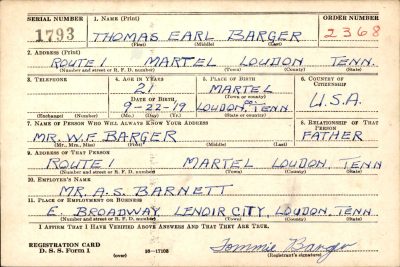 SERIAL NUMBER 1. NAME (Print) ORDER NUMBER
1793 THOMAS EARL BARGER 2368
(First) (Middle) (Last)
2. ADDRESS (Print)
ROUTE 1 MARTEL LOUDON TENN.
(Number and street or R. F. D. number) (Town) (County) (State)
3. TELEPHONE 4. AGE IN YEARS 5. PLACE OF BIRTH 6. COUNTRY OF CITIZENSHIP
21 MARTEL
(Town or county)
DATE OF BIRTH
9-22-19 LOUDON, CO. TENN U.S.A.
(Exchange) (Number) (Mo.) (Day) (Yr.) (State or country)
7. NAME OF PERSON WHO WILL ALWAYS KNOW YOUR ADDRESS 8. RELATIONSHIP OF THAT PERSON
MR. W.F. BARGER FATHER
(Mr., Mrs., Miss) (First) (Middle) (Last)
9. ADDRESS OF THAT PERSON
ROUTE 1 MARTEL LOUDON, TENN
(Number and street or R. F. D. number) (Town) (County) (State)
10. EMPLOYER'S NAME
MR. A.S. BARNETT
11. PLACE OF EMPLOYMENT OR BUSINESS
E. BROADWAY LENOIR CITY, LOUDON, TENN.
(Number and street or R. F. D. number) (Town) (County) (State)
I AFFIRM THAT I HAVE VERIFIED ABOVE ANSWERS AND THAT THEY ARE TRUE.
REGISTRATION CARD
D. S. S. Form 1 (over) 16-17105 Tommie Barger
(Registrant's signature)